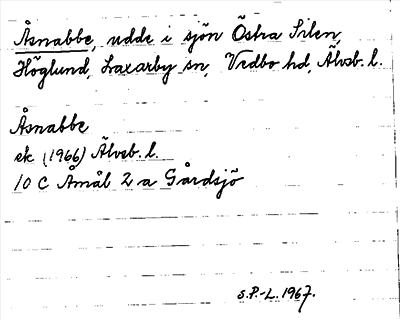 Åsnabbe, udde i sjön Östra Silen,
Höglund, Laxarby sn, Vedbo hd, Älvsb. l.
Åsnabbe
ek (1966) Älvsb. l.
10 C Åmål 2 a Gårdsjö
S.P.-L. 1967.